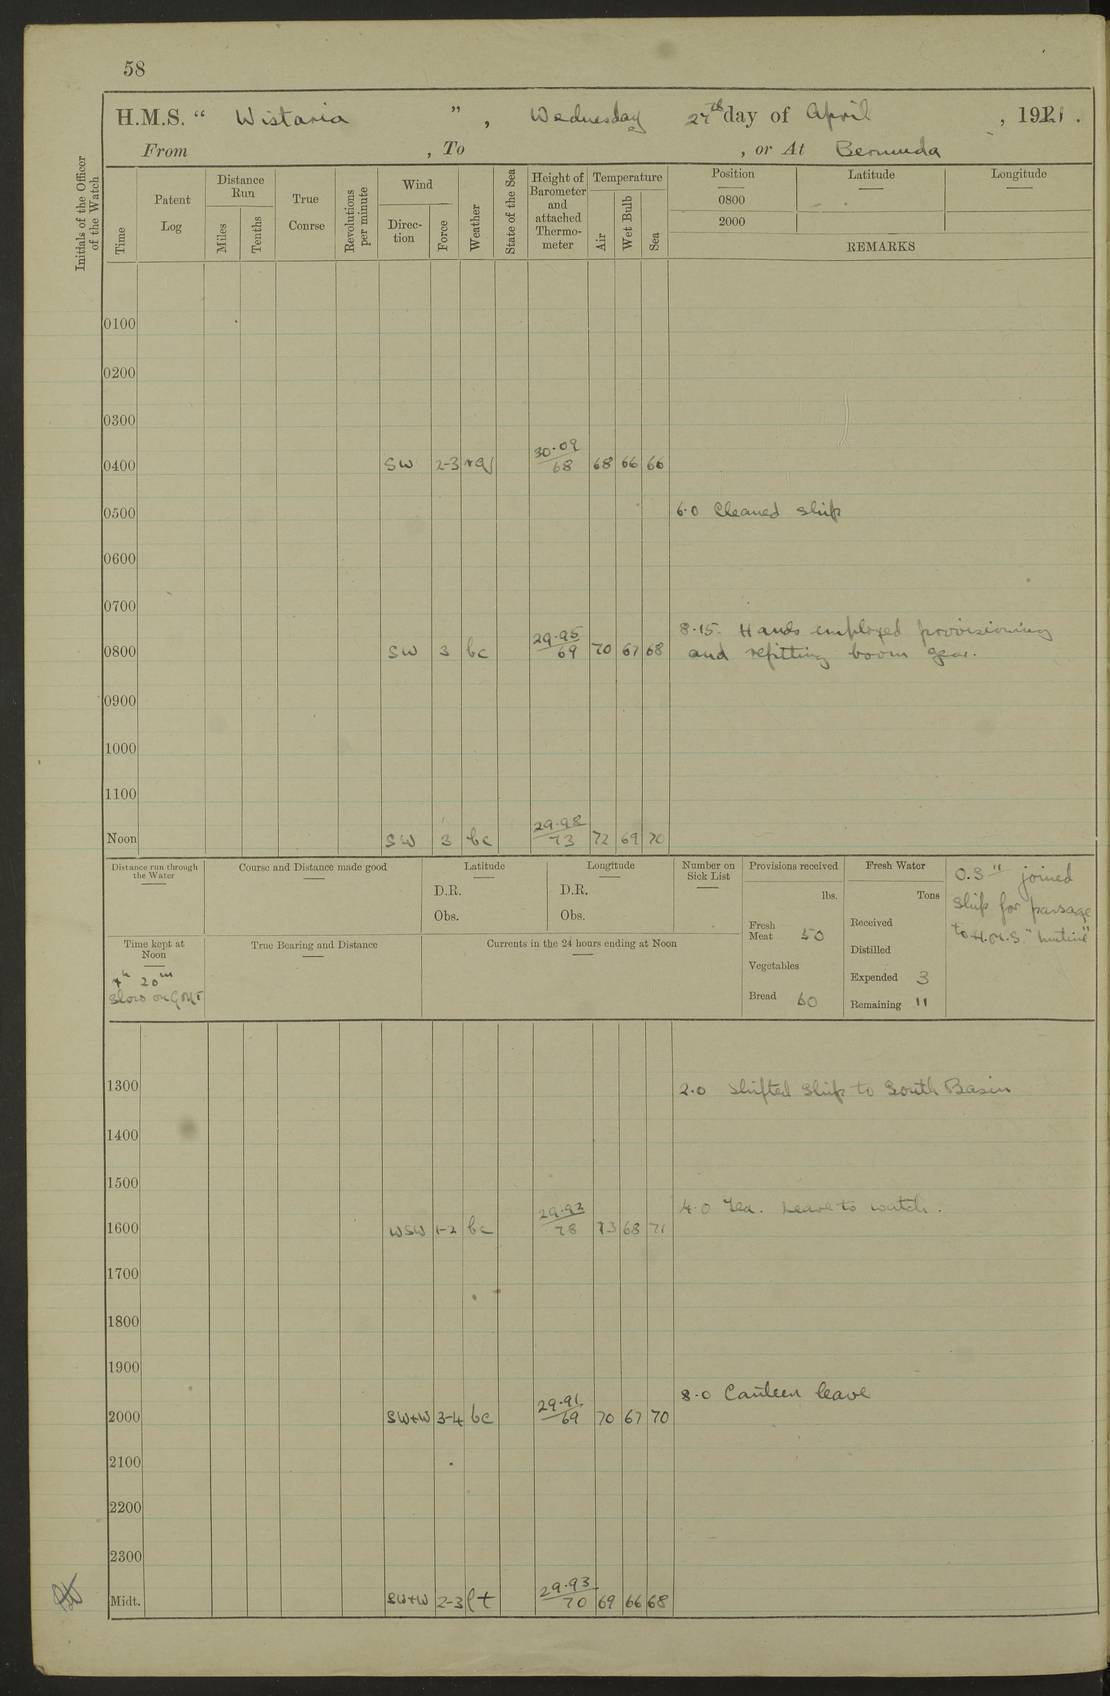 58
H.M.S. “ Wistaria ” , Wednesday 27th day of April , 1921 .
From , To , or At Bermuda
Initials of the Officer of the Watch
Time
Patent Log
Distance Run
Miles
Tenths
True Course
Revolutions per minute
Wind
Direc-tion
Force
Weather
State of the Sea
Height of Barometer and attached Thermo-meter
Temperature
Air
Wet Bulb
Sea
Position
Latitude
Longitude
0800
2000
REMARKS
0100
0200
0300
0400 SW 2-3 30·09/68 68 66 66
0500 6·0 Cleaned ship
0600
0700
8·15. Hands employed provisioning
0800 SW 3 bc 29·95/69 70 67 68 and refitting boom gear.
0900
1000
1100
Noon SW 3 bc 29·98/73 72 69 70
Distance run through the Water
Course and Distance made good
Latitude
D.R.
Obs.
Longitude
D.R.
Obs.
Number on Sick List
Provisions received
lbs.
Fresh Meat 50
Vegetables
Bread 60
Fresh Water
Tons
Received
Distilled
Expended 3
Remaining 11
O.S joined
ship for passage
to H.M.S.
Time kept at Noon
4h 20m
Slow on GMT
True Bearing and Distance
Currents in the 24 hours ending at Noon
1300 2·0 Shifted Ship to South Basin
1400
1500
4·0 Tea. Leave to watch.
1600 WSW 1-2 bc 29·93/78 73 68 71
1700
1800
1900
8·0 Canteen leave
2000 SW+W 3-4 bc 29·91/69 70 67 70
2100
2200
2300
Midt. SW+W 2-3 29·93/70 69 66 68